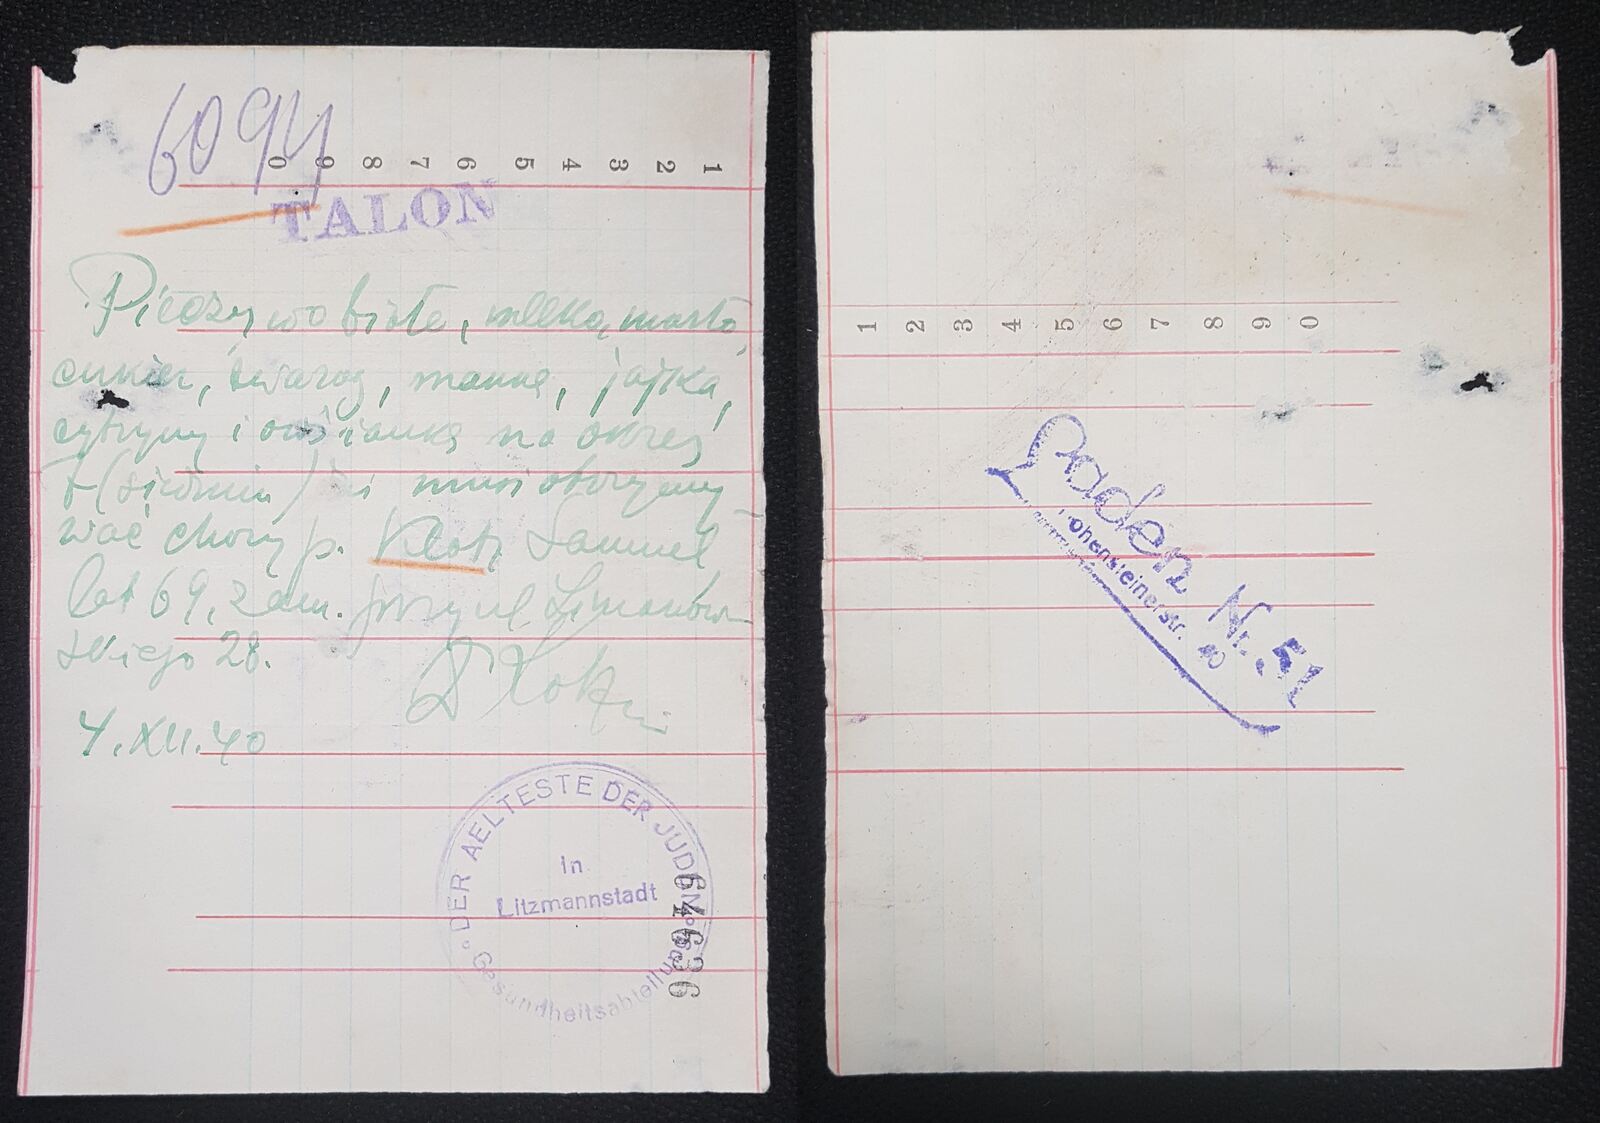 6094
0 9 8 7 6 5 4 3 2 1
TALON
Pieczywo białe, mleko, masło,
cukier, twaróg, mannę, jajka,
cytryny i owsiankę na okres
7 (siedmiu) dni musi otrzymy-
wać chory p. Klotz Samuel
lat 69, zam. przy ul. Limanow-
skiego 28.
4.XII.40
DER AELTESTE DER JUDEN
in
Litzmannstadt
Gesundheitsabteilung
64636
1 2 3 4 5 6 7 8 9 0
Laden Nr. 51
Hohensteinerstr. 40